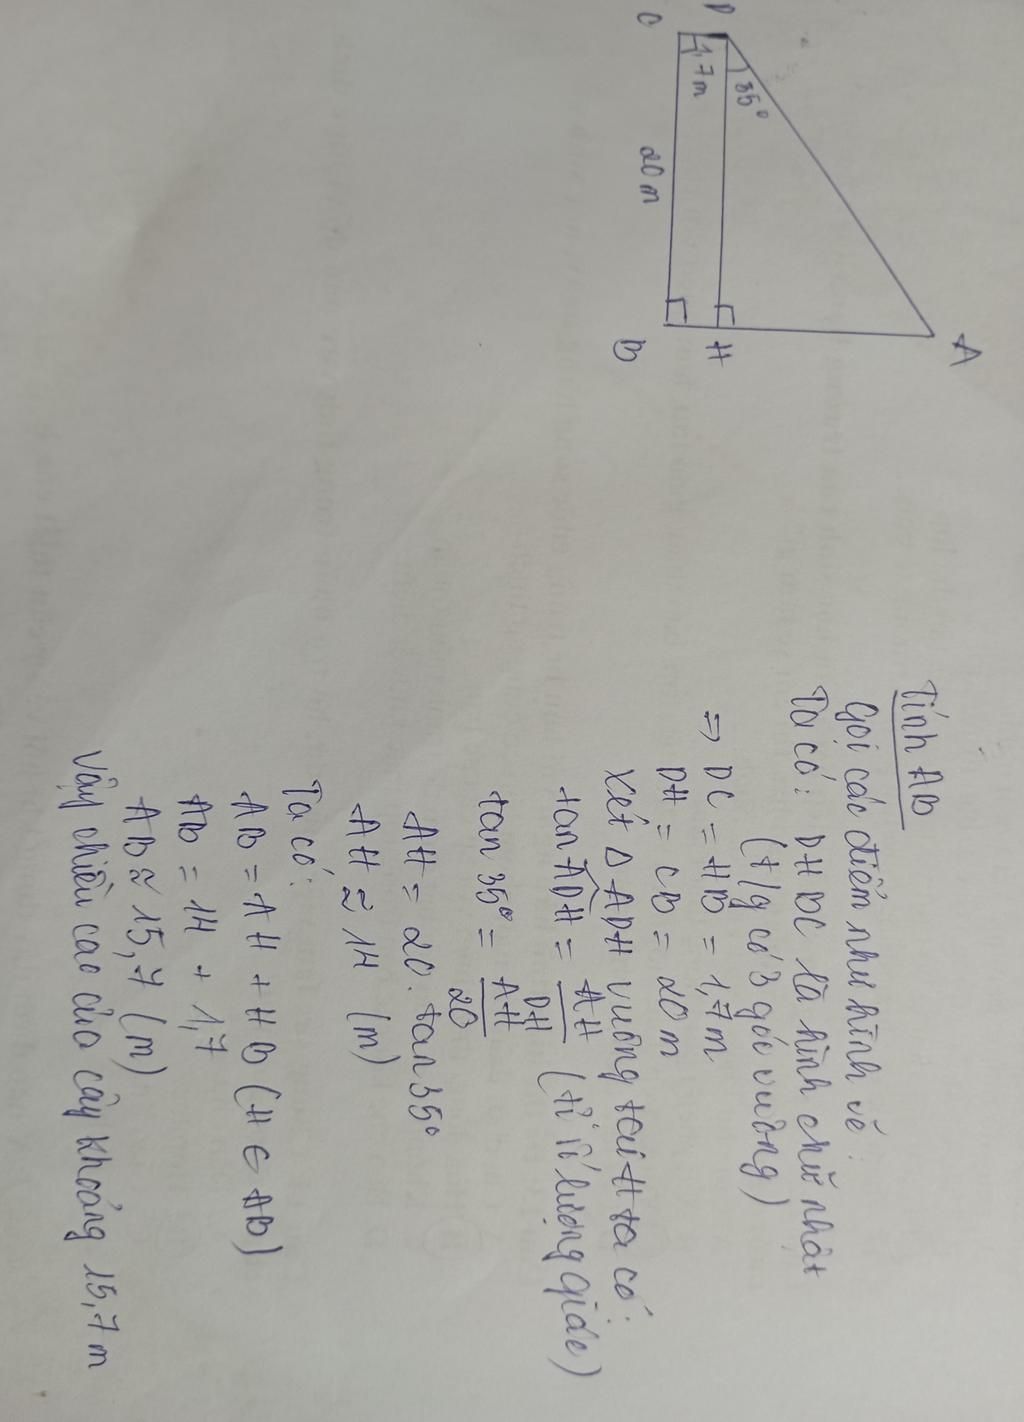 D
C
1,7m
35°
20 m
A
H
B
Tính AB
Gọi các điểm như hình vẽ:
Ta có: DHBC là hình chữ nhật
(t/g có 3 góc vuông)
=> DC = HB = 1,7m
DH = CB = 20 m
Xét Δ ADH vuông tại H ta có:
tan ADH = AH/DH (tỉ lượng giác)
tan 35° = AH/20
AH = 20. tan 35°
AH ≈ 14 (m)
Ta có:
AB = AH + HB (H ∈ AB)
AB = 14 + 1,7
AB ≈ 15,7 (m)
Vậy chiều cao của cây khoảng 15,7 m